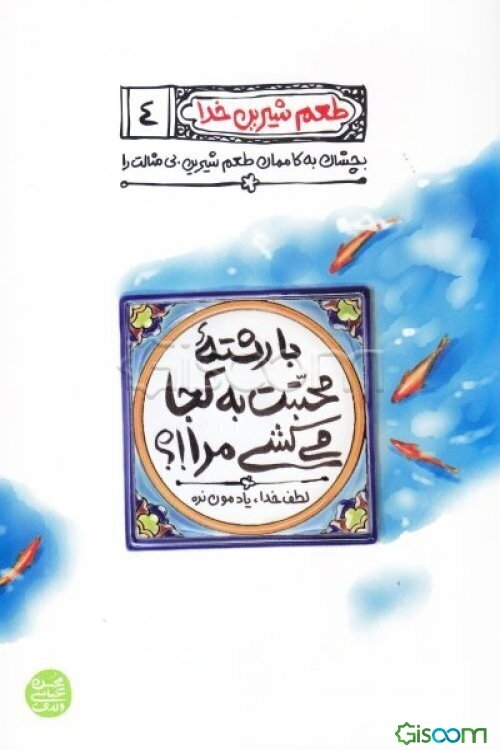 طعم شیرین خدا
٤
بچشان به کاممان طعم شیرین بی مثالت را
با رشتهٔ
محبّتت به کجا
می‌کشی مرا!؟
لطف خدا، یادمون نره
محسن
عباسی
ولدی
Gisoom
Gisoom